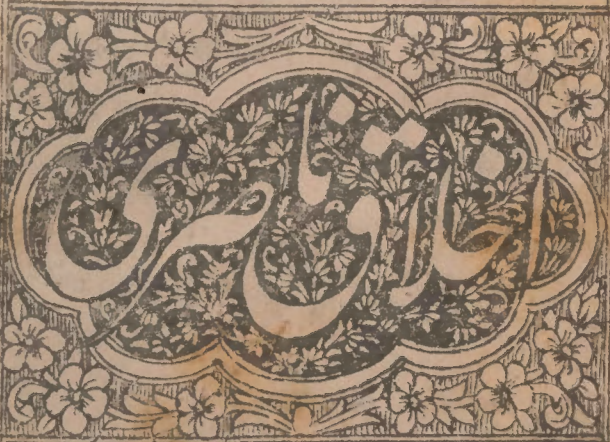 اخلاق ناصری